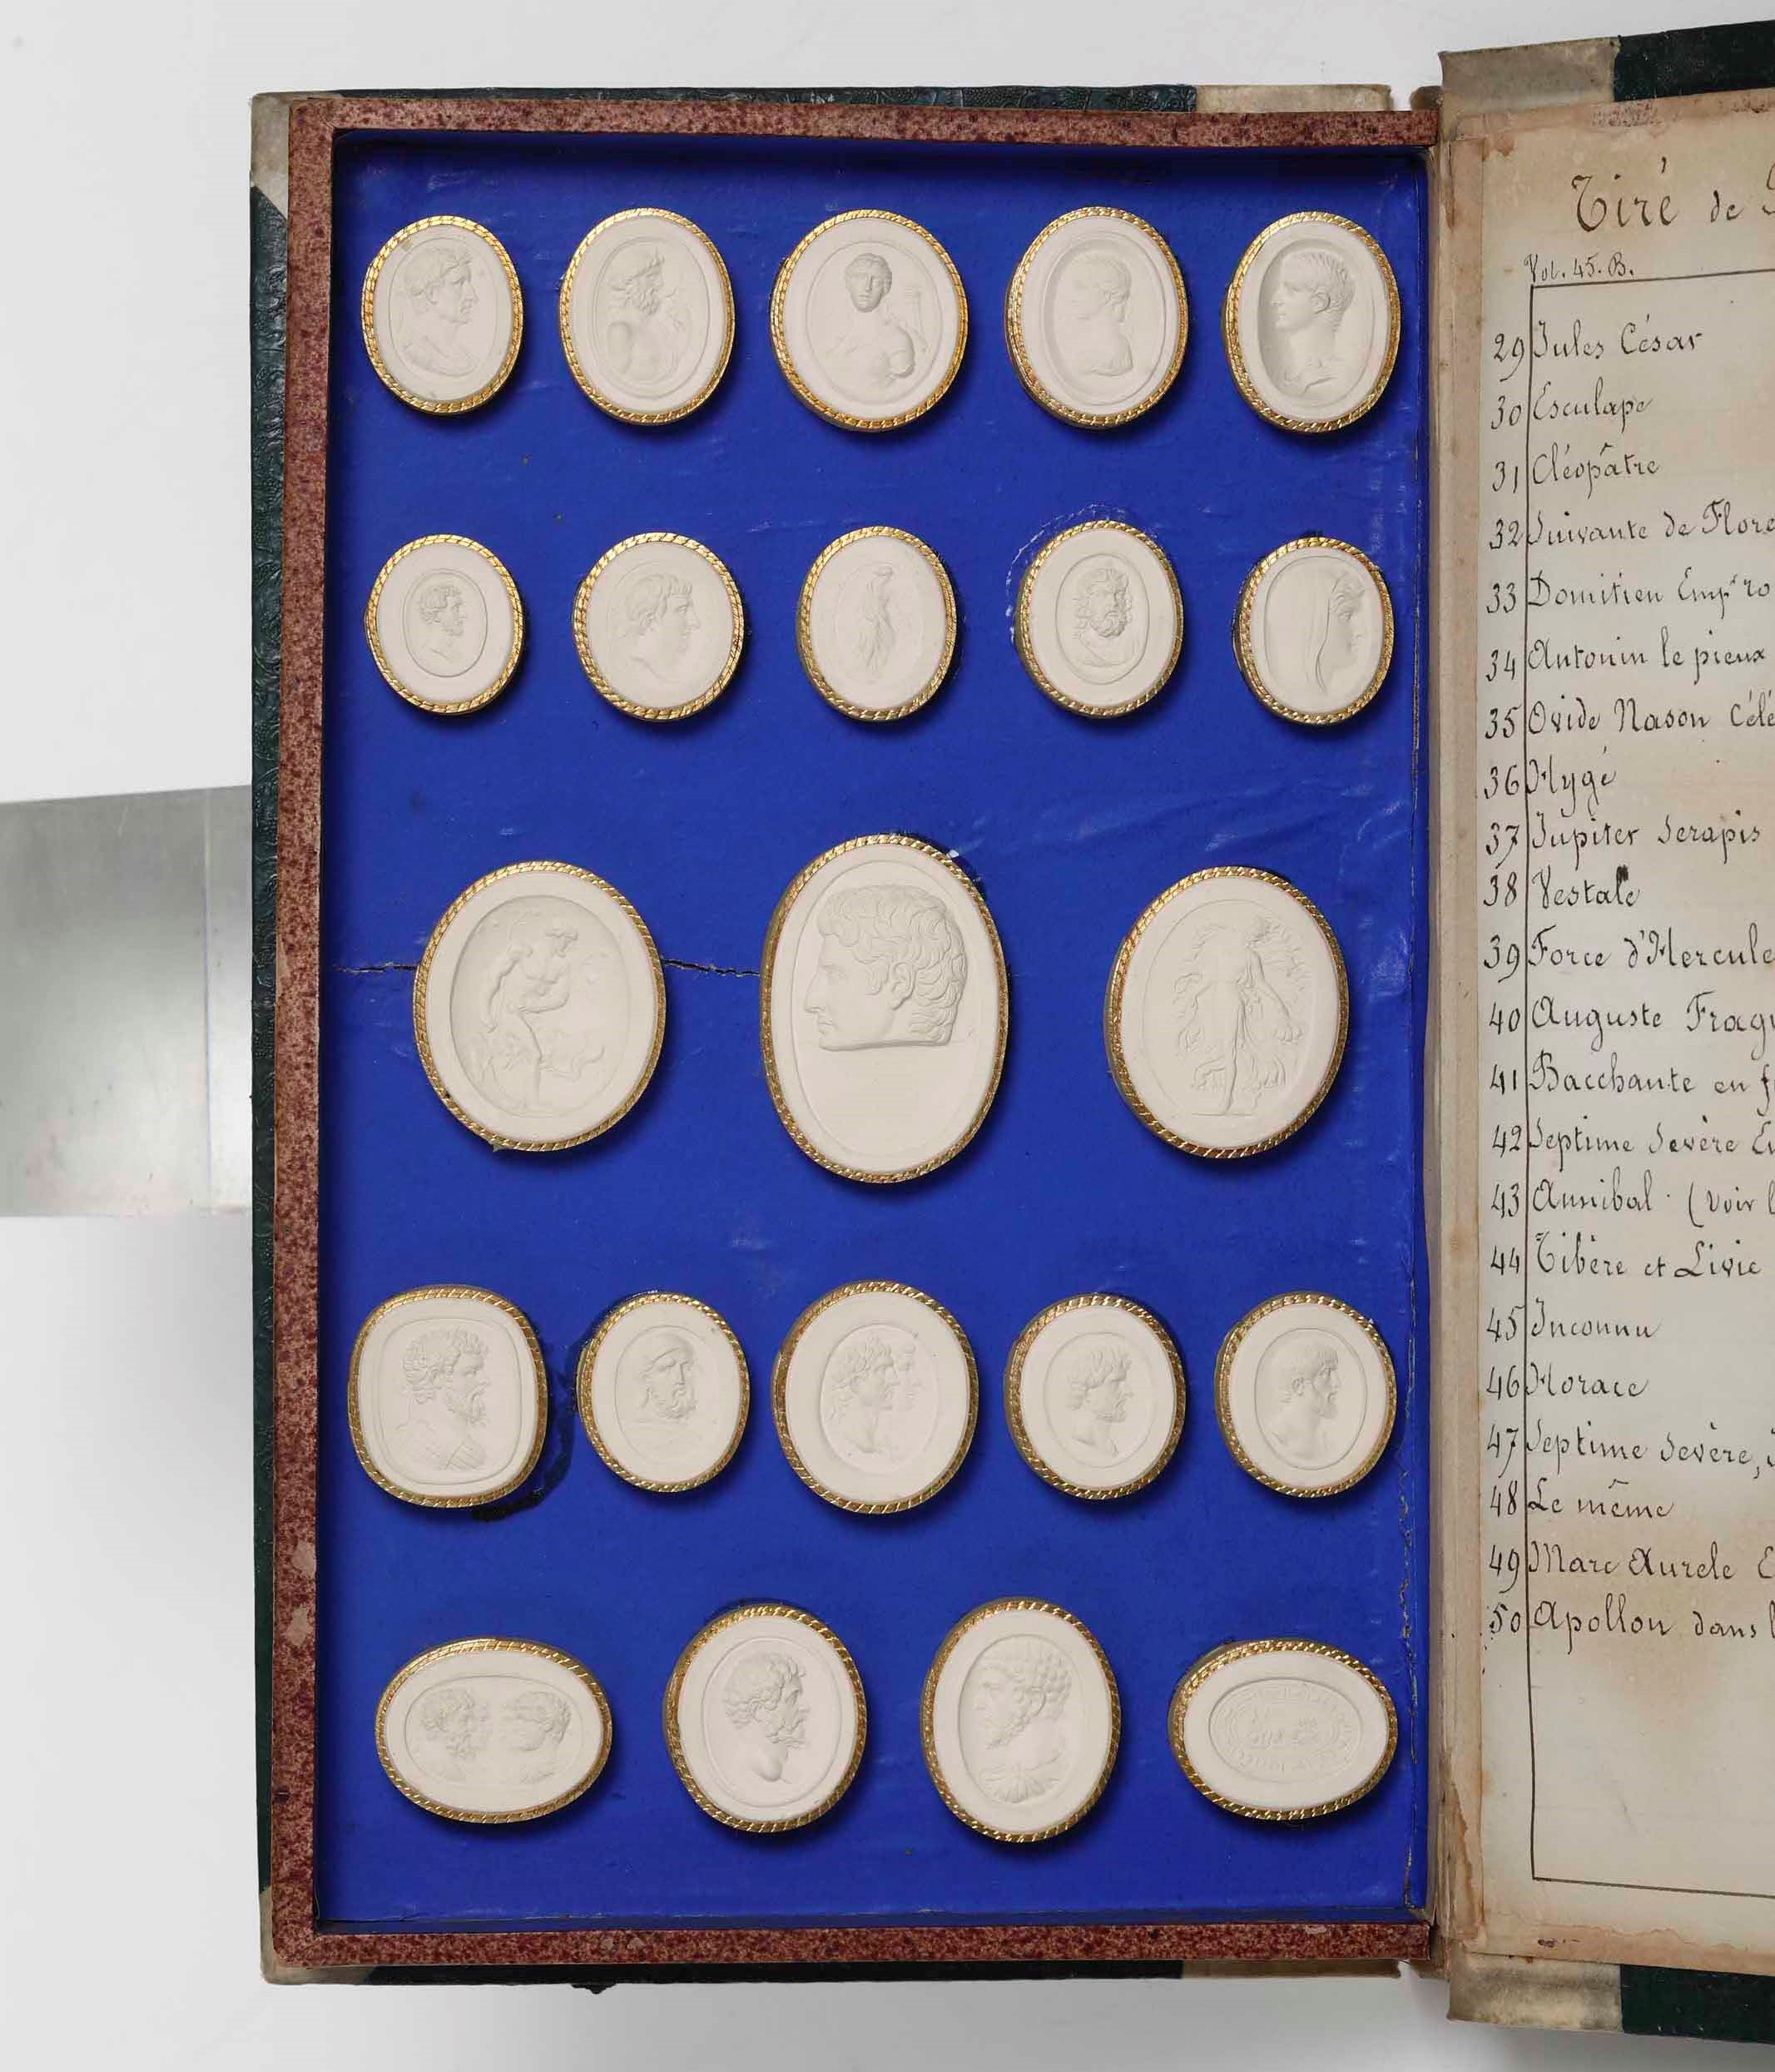 Tiré de
Vol. 45. B.
29 Jules César
30 Esculape
31 Cléopâtre
32 Suivante de Flore
33 Domitien Emp ro
34 Antonin le pieux
35 Ovide Nason Célè
36 Hygé
37 Jupiter Serapis
38 Vestale
39 Force d'Hercule
40 Auguste Frag
41 Bacchante en f
42 Septime Sevère E
43 Annibal. (voir l
44 Tibère et Livie
45 Inconnu
46 Horace
47 Septime Sevère,
48 Le même
49 Marc Aurele E
50 Apollon dans l